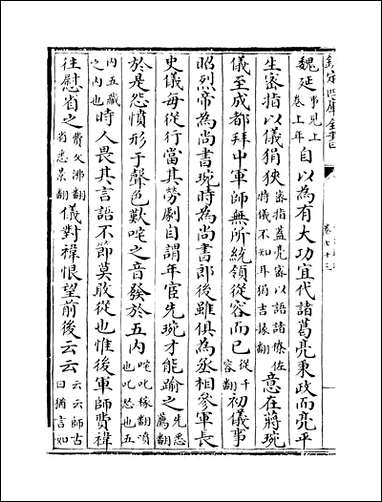 欽定四庫全書
魏延事見上卷上年自以為有大功宜代諸葛亮秉政而亮平
生密指以儀狷狹密指蓋亮密以語諸僚佐特儀不知耳狷吉掾翻意在蔣琬
儀至成都拜中軍師無所統領從容而已從千容翻初儀事
昭烈帝為尚書琬時為尚書郎後雖俱為丞相參軍長
史儀每從行當其勞劇自謂年官先琬才能踰之先悉薦翻
於是怨憤形于聲色歎咤之音發於五內咤叱稼翻噴也叱怒也五
內五藏之內也時人畏其言語不節莫敢從也惟後軍師費禕
往慰省之費父沸翻省悉景翻儀對禕恨望前後云云云師古曰猶言如